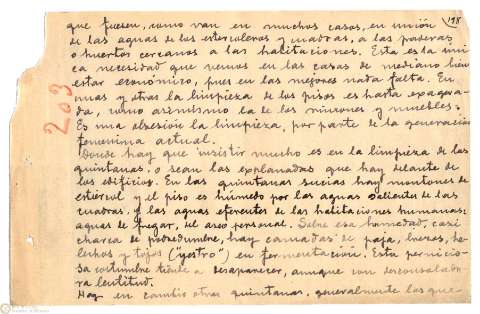 198
que fuesen, como van en muchos casos, en unión
de las aguas de los estercoleros y cuadras, a las praderas
o huertos cercanos a las habitaciones. Esta es la úni
ca necesidad que vemos en las casas de mediano bien
estar económico, pues en las mejores nada falta. En
unas y otras la limpieza de los pisos es harto exagera
da, como asimismo la de los rincones y muebles.
Es una obsesión la limpieza, por parte de la generación
femenina actual.
Donde hay que insistir mucho es en la limpieza de las
quintanas, o sean las explanadas que hay delante de
los edificios. En las quintanas sucias hay montones de
estiércol y el piso es húmedo por las aguas salientes de las
cuadras, y las aguas eferentes de las habitaciones humanas:
aguas de fregar, del aseo personal. Sobre esa humedad, casi
charca de podredumbre, hay camadas de paja, brezos, he
lechos y tojos ("yostro") en fermentación. Esta pernicio
sa costumbre tiende a desaparecer, aunque con desconsolado
ra lentitud.
Hay en cambio otras quintanas, generalmente las que
203